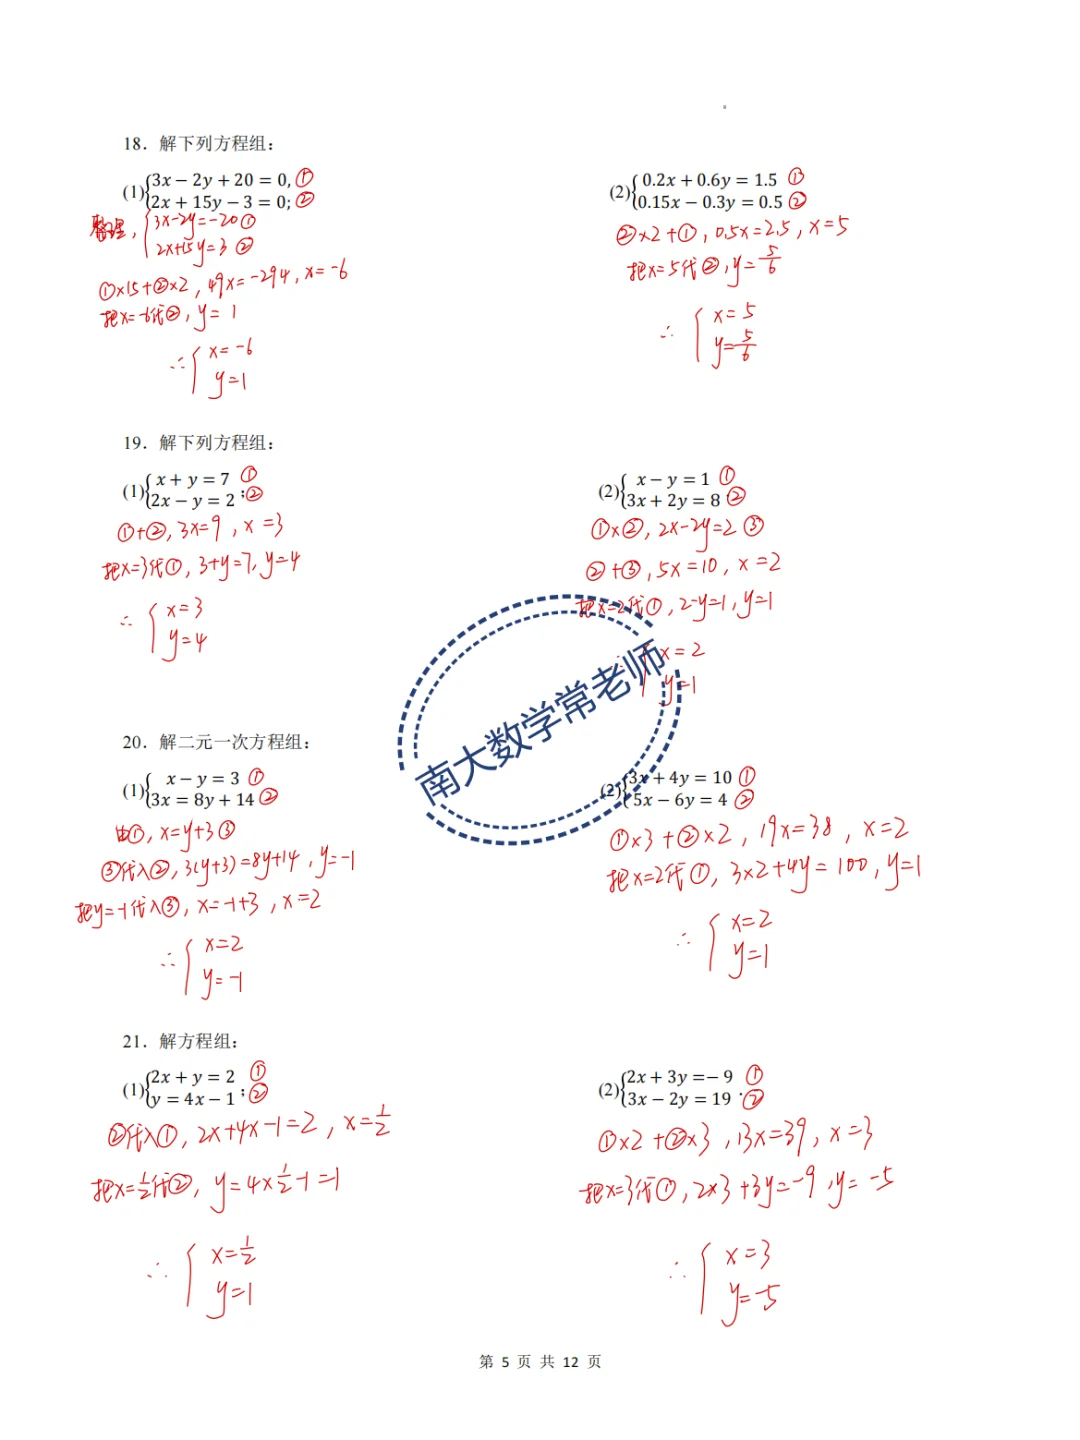 18．解下列方程组：
(1){3x − 2y + 20 = 0, ①
2x + 15y − 3 = 0; ②
整理，{3x−2y=−20 ①
2x+15y=3 ②
①×15+②×2，49x=−294，x=−6
把x=−6代②，y=1
∴{x=−6
y=1
(2){0.2x + 0.6y = 1.5 ①
0.15x − 0.3y = 0.5 ②
②×2+①，0.5x=2.5，x=5
把x=5代②，y=5/6
∴{x=5
y=5/6
19．解下列方程组：
(1){x + y = 7 ①
2x − y = 2 ; ②
①+②，3x=9，x=3
把x=3代①，3+y=7，y=4
∴{x=3
y=4
(2){x − y = 1 ①
3x + 2y = 8 ②
①×②，2x−2y=2 ③
②+③，5x=10，x=2
把x=2代①，2−y=1，y=1
∴{x=2
y=1
南大数学常老师
20．解二元一次方程组：
(1){x − y = 3 ①
3x = 8y + 14 ②
由①，x=y+3 ③
③代入②，3(y+3)=8y+14，y=−1
把y=−1代入③，x=−1+3，x=2
∴{x=2
y=−1
(2){3x + 4y = 10 ①
5x − 6y = 4 ②
①×3+②×2，19x=38，x=2
把x=2代①，3×2+4y=100，y=1
∴{x=2
y=1
21．解方程组：
(1){2x + y = 2 ①
y = 4x − 1 ; ②
②代入①，2x+4x−1=2，x=1/2
把x=1/2代②，y=4×1/2−1=1
∴{x=1/2
y=1
(2){2x + 3y = − 9 ①
3x − 2y = 19 . ②
①×2+②×3，13x=39，x=3
把x=3代①，2×3+3y=−9，y=−5
∴{x=3
y=−5
第 5 页 共 12 页